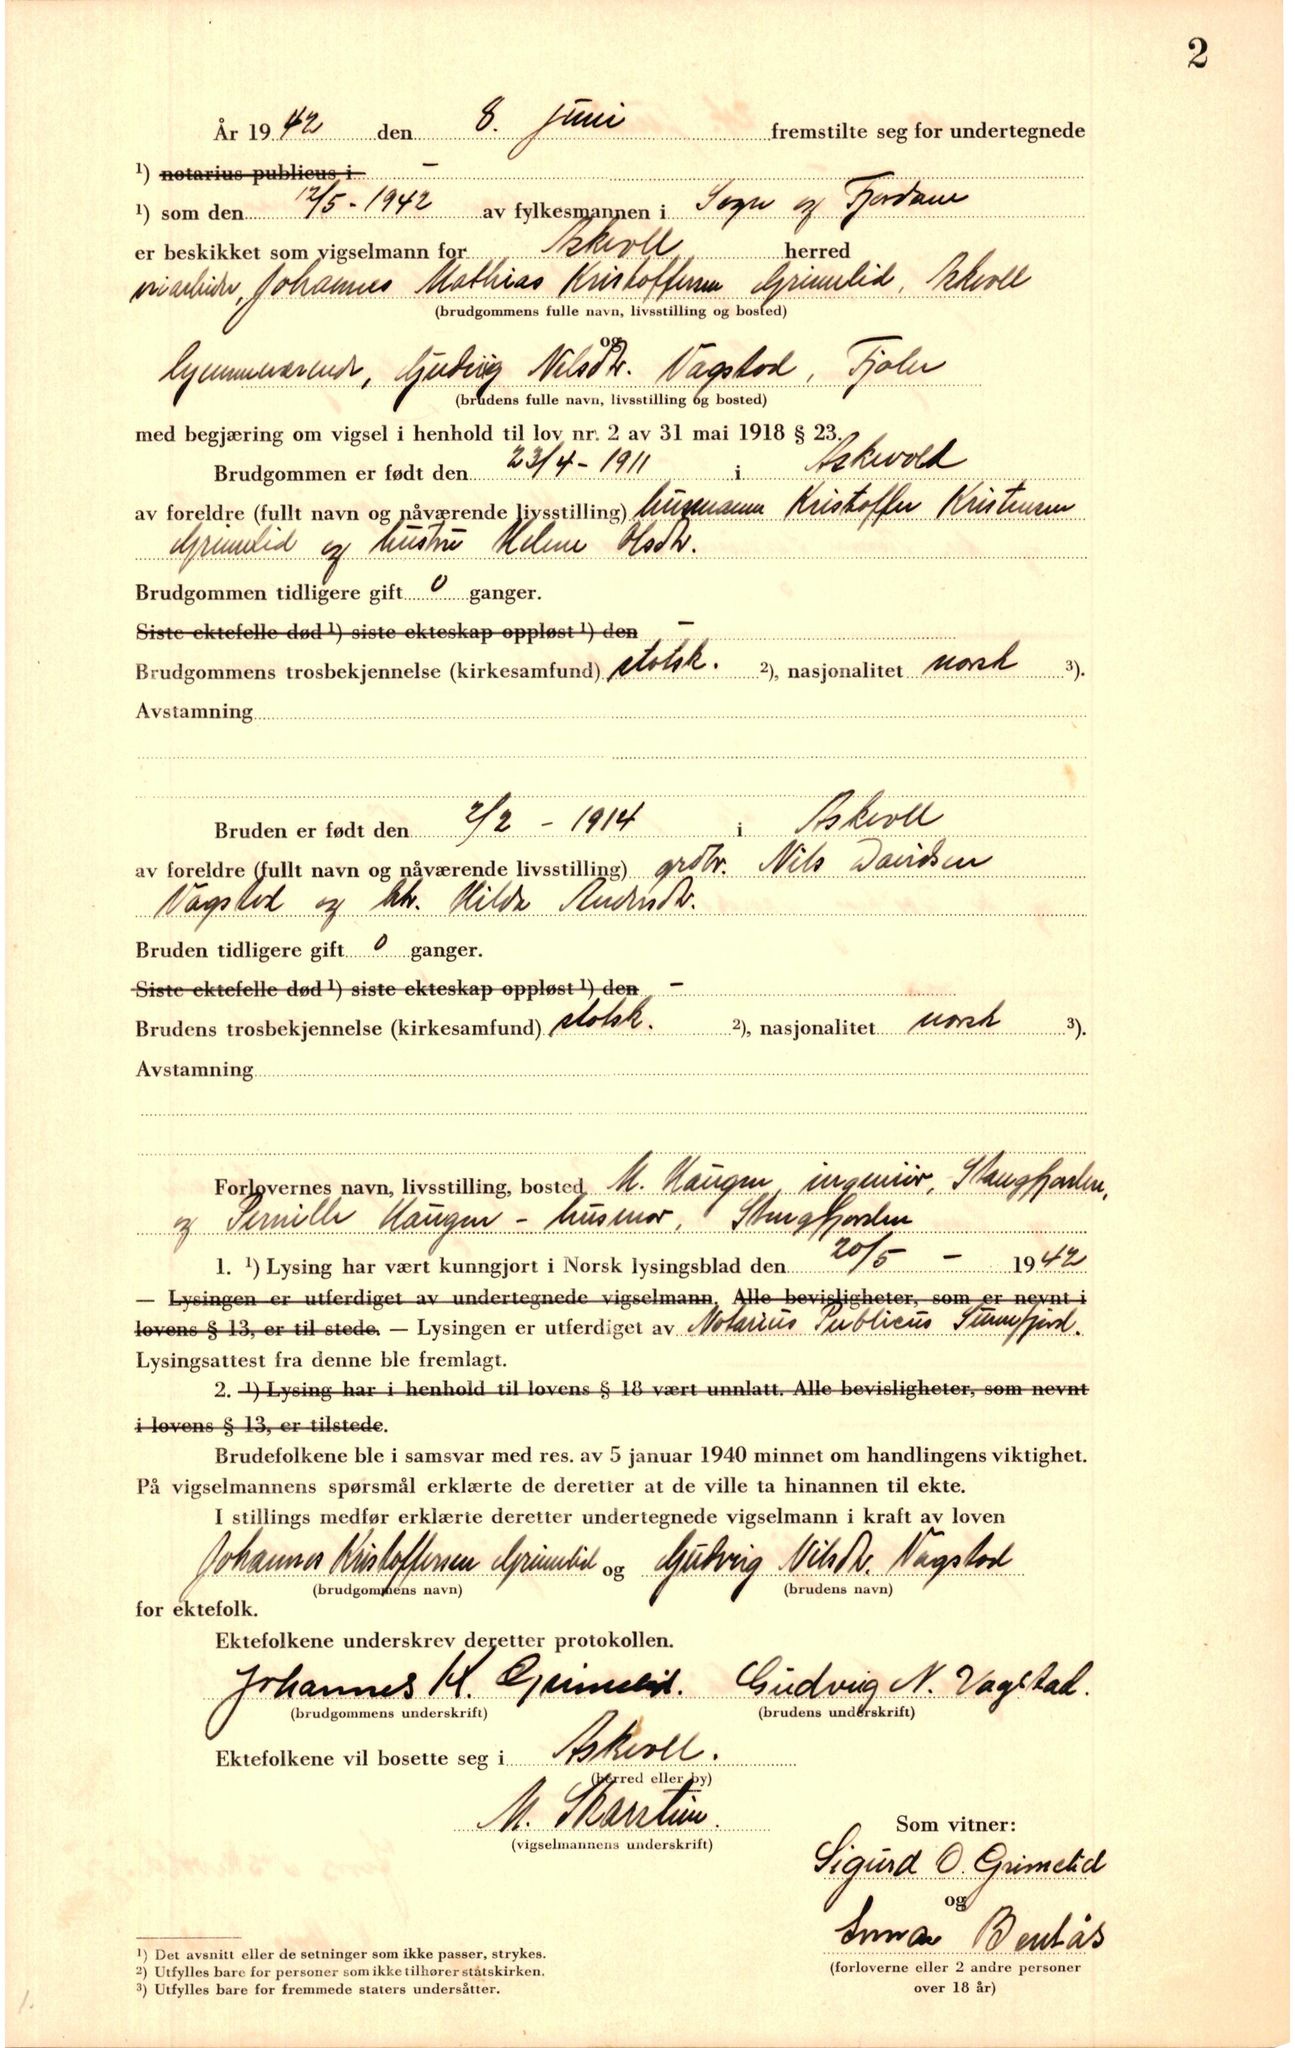 2
År 1942 den 8. juni fremstilte seg for undertegnede
¹) notarius publicus i –
¹) som den 12/5 - 1942 av fylkesmannen i Sogn og Fjordane
er beskikket som vigselmann for Askvoll herred
Johannes Mathias Kristoffersen Grimelid, Askvoll
(brudgommens fulle navn, livsstilling og bosted)
og
hjemmeværende, Gudvig Nilsdtr. Vagstad, Fjaler
(brudens fulle navn, livsstilling og bosted)
med begjæring om vigsel i henhold til lov nr. 2 av 31 mai 1918 § 23.
Brudgommen er født den 23/4 - 1911 i Askvold
av foreldre (fullt navn og nåværende livsstilling) husmann Kristoffer Kristensen
Grimelid og hustru Helene Olsdtr.
Brudgommen tidligere gift 0 ganger.
Siste ektefelle død ¹) siste ekteskap oppløst ¹) den –
Brudgommens trosbekjennelse (kirkesamfund) statsk. ²), nasjonalitet norsk ³).
Avstamning
Bruden er født den 2/2 - 1914 i Askvoll
av foreldre (fullt navn og nåværende livsstilling) grdbr. Nils Davidsen
Vagstad og h. Hilda Andersdtr.
Bruden tidligere gift 0 ganger.
Siste ektefelle død ¹) siste ekteskap oppløst ¹) den –
Brudens trosbekjennelse (kirkesamfund) statsk. ²), nasjonalitet norsk ³).
Avstamning
Forlovernes navn, livsstilling, bosted M. Haugen, ingeniør, Stangfjorden,
og Pernille Haugen - husmor, Stangfjorden
1. ¹) Lysing har vært kunngjort i Norsk lysingsblad den 20/5 – 1942
— Lysingen er utferdiget av undertegnede vigselmann. Alle bevisligheter, som er nevnt i
lovens § 13, er til stede. — Lysingen er utferdiget av Notarius Publicus Sunnfjord.
Lysingsattest fra denne ble fremlagt.
2. ¹) Lysing har i henhold til lovens § 18 vært unnlatt. Alle bevisligheter, som nevnt
i lovens § 13, er tilstede.
Brudefolkene ble i samsvar med res. av 5 januar 1940 minnet om handlingens viktighet.
På vigselmannens spørsmål erklærte de deretter at de ville ta hinannen til ekte.
I stillings medfør erklærte deretter undertegnede vigselmann i kraft av loven
Johannes Kristoffersen Grimelid og Gudvig Nilsdtr. Vagstad
(brudgommens navn) (brudens navn)
for ektefolk.
Ektefolkene underskrev deretter protokollen.
Johannes K. Grimelid. Gudvig N. Vagstad.
(brudgommens underskrift) (brudens underskrift)
Ektefolkene vil bosette seg i Askvoll.
(herred eller by)
M. Skarstein.
(vigselmannens underskrift)
Som vitner:
Sigurd O. Grimelid
og
Bentås
(forloverne eller 2 andre personer
over 18 år)
¹) Det avsnitt eller de setninger som ikke passer, strykes.
²) Utfylles bare for personer som ikke tilhører statskirken.
³) Utfylles bare for fremmede staters undersåtter.
1.